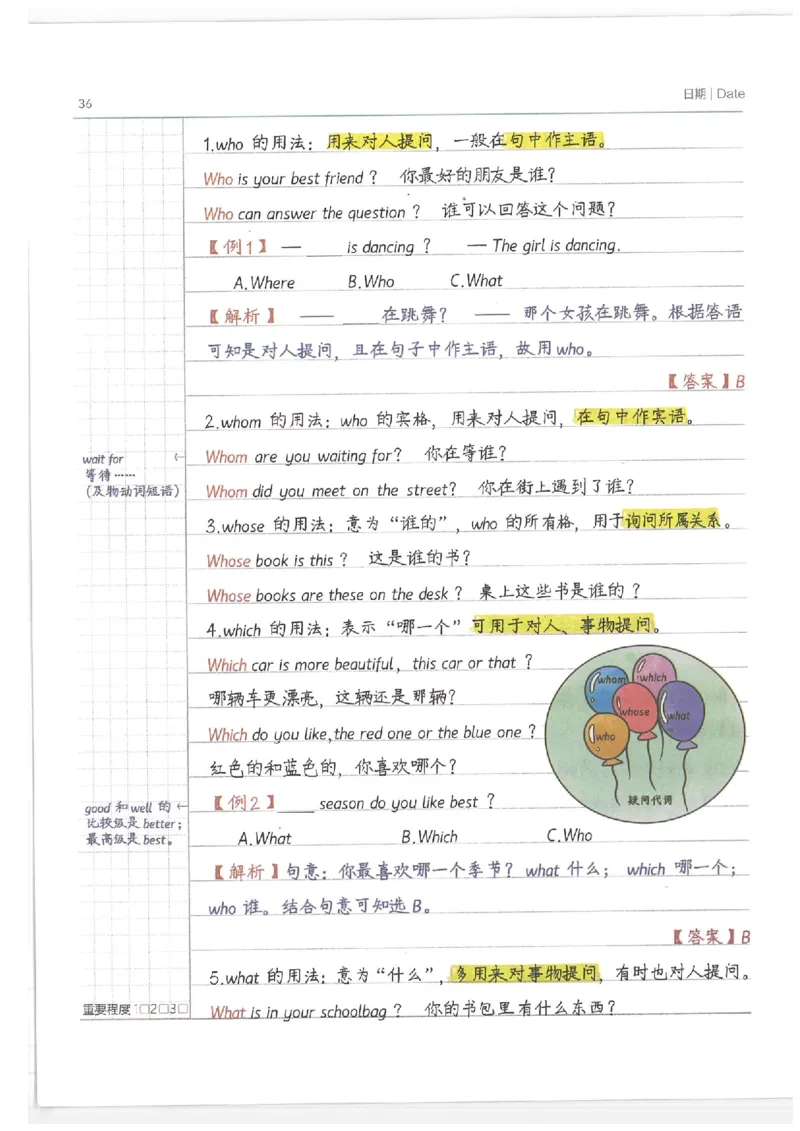 36
日期 | Date
1.who 的用法：用来对人提问，一般在句中作主语。
Who is your best friend？ 你最好的朋友是谁？
Who can answer the question？ 谁可以回答这个问题？
【例1】— ____ is dancing？ — The girl is dancing.
A.Where B.Who C.What
【解析】 —— ____在跳舞？ —— 那个女孩在跳舞。根据答语
可知是对人提问，且在句子中作主语，故用who。
【答案】B
2.whom 的用法：who 的宾格，用来对人提问，在句中作宾语。
wait for
等待……
（及物动词短语）
Whom are you waiting for？ 你在等谁？
Whom did you meet on the street？ 你在街上遇到了谁？
3.whose 的用法：意为“谁的”，who 的所有格，用于询问所属关系。
Whose book is this？ 这是谁的书？
Whose books are these on the desk？ 桌上这些书是谁的？
4.which 的用法：表示“哪一个”可用于对人、事物提问。
Which car is more beautiful，this car or that？
哪辆车更漂亮，这辆还是那辆？
Which do you like,the red one or the blue one？
红色的和蓝色的，你喜欢哪个？
whom
which
whose
what
who
疑问代词
good 和 well 的
比较级是 better；
最高级是 best。
【例2】____ season do you like best？
A.What B.Which C.Who
【解析】句意：你最喜欢哪一个季节？what 什么； which 哪一个；
who 谁。结合句意可知选B。
【答案】B
5.what 的用法：意为“什么”，多用来对事物提问，有时也对人提问。
What is in your schoolbag？ 你的书包里有什么东西？
重要程度 1□2□3□